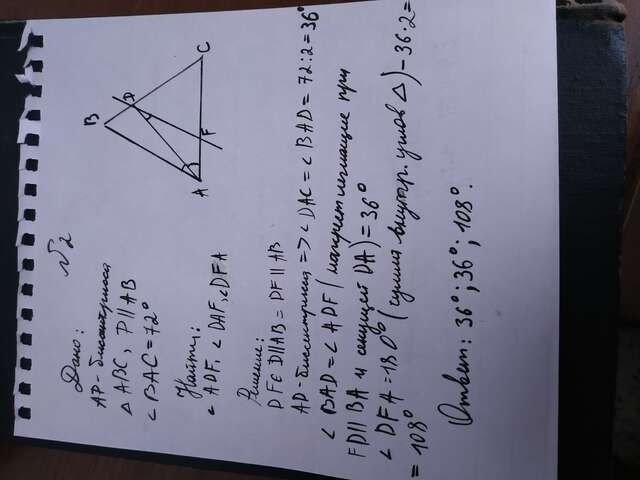 №2
Дано:
AD - биссектриса
△ ABC, D || AB
∠ BAC = 72°
Найти:
∠ ADF, ∠ DAF, ∠ DFA
Решение:
DF ∈ D || AB = DF || AB
AD - биссектриса => ∠ DAC = ∠ BAD = 72:2 = 36°
∠ BAD = ∠ ADF (накрест лежащие при
FD || BA и секущей DA) = 36°
∠ DFA = 180° (сумма внутр. углов △) - 36·2 =
= 108°
Ответ: 36°; 36°; 108°.
A
B
F
D
C